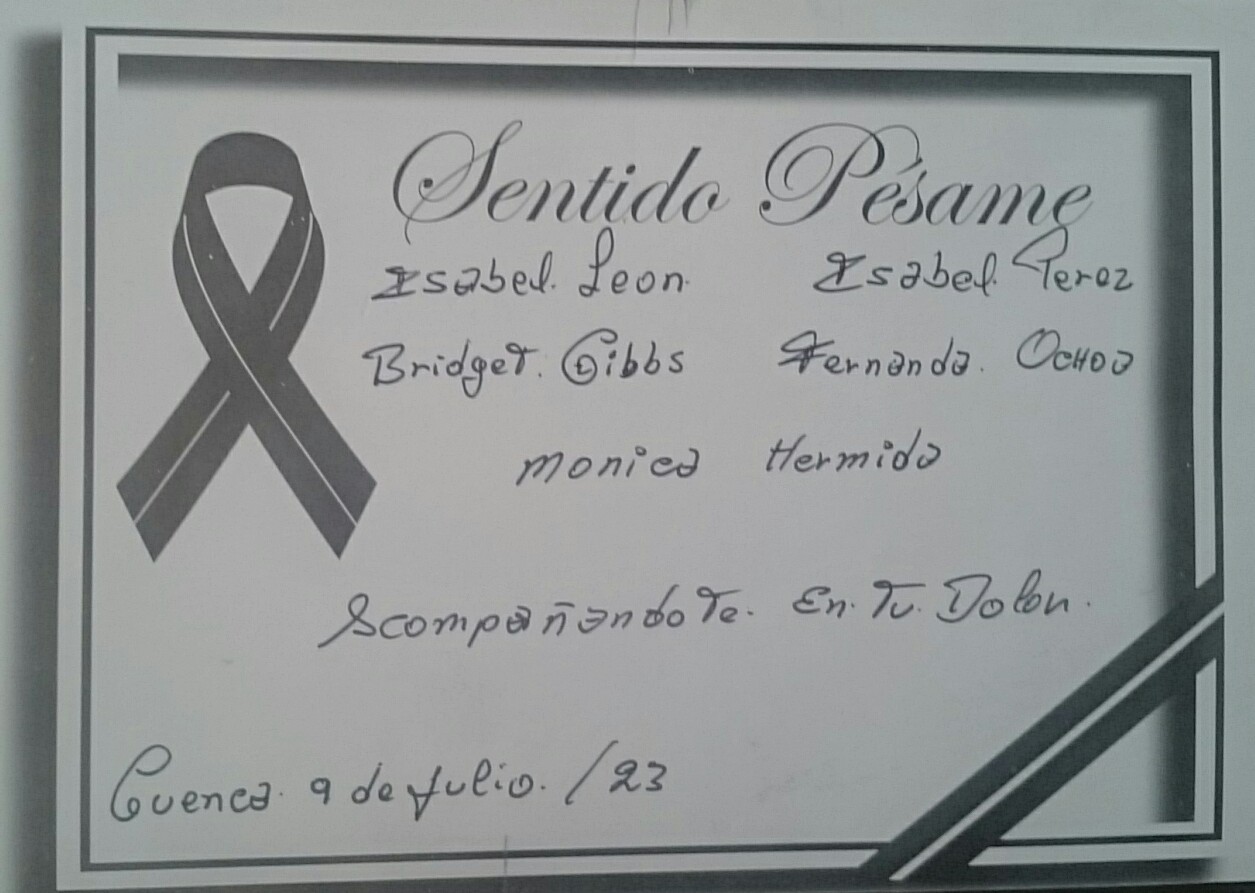 Sentido Pésame
Isabel. Leon. Isabel Perez
Bridget. Gibbs Fernanda. Ochoa
Monica Hermida
Acompañandote. En. Tu. Dolor.
Cuenca. 9 de Julio. /23